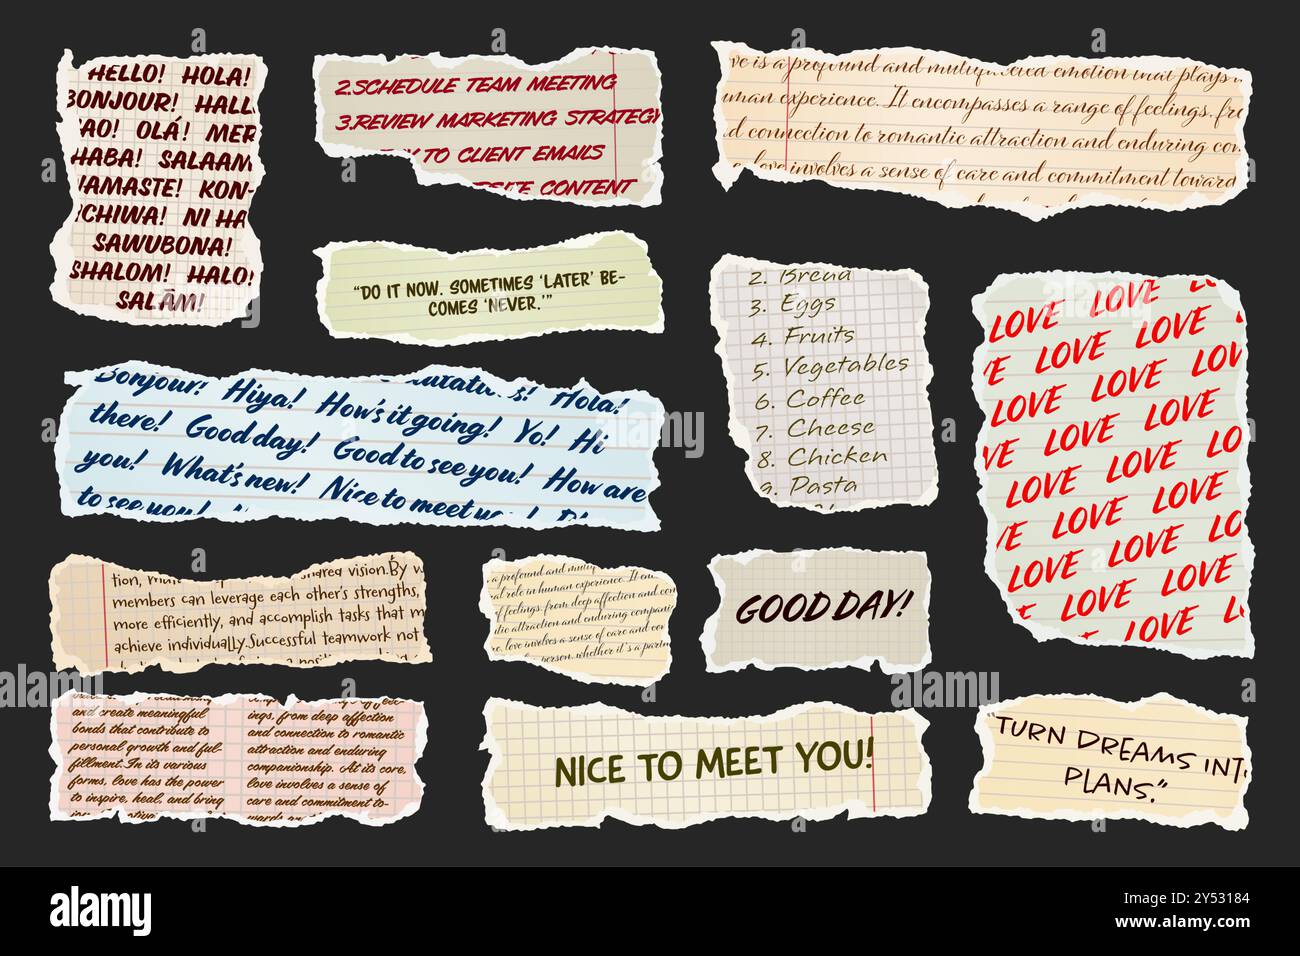 HELLO! HOLA!
BONJOUR! HALL
AO! OLÁ! MER
HABA! SALAAM
NAMASTE! KON-
ICHIWA! NI HA
SAWUBONA!
SHALOM! HALO!
SALĀM!
2.SCHEDULE TEAM MEETING
3.REVIEW MARKETING STRATEGY
TO CLIENT EMAILS
CONTENT
ve is a profound and emotion that plays
uman experience. It encompasses a range of feelings, fro
d connection to romantic attraction and enduring com
love involves a sense of care and commitment toward
"DO IT NOW. SOMETIMES 'LATER' BE-
COMES 'NEVER.'"
Bonjour! Hiya! How's it going! Yo! Hi
Hola!
there! Good day! Good to see you! How are
you! What's new! Nice to meet
to see you!
2. Bread
3. Eggs
4. Fruits
5. Vegetables
6. Coffee
7. Cheese
8. Chicken
9. Pasta
LOVE LOVE L
E LOVE LOVE
LOVE LOVE LOV
LOVE LOVE
VE LOVE LO
LOVE LOVE
VE LOVE LOVE
LOVE LOVE LO
LOVE LOVE
LOVE L
tion, shared vision.By w
members can leverage each other's strengths,
more efficiently, and accomplish tasks that m
achieve individually.Successful teamwork not
a profound and
al role in human experience. It en
f feelings, from deep affection and con
tic attraction and enduring compani
re, love involves a sense of care and com
person, whether it's a partn
GOOD DAY!
and create meaningful
bonds that contribute to
personal growth and ful-
fillment. In its various
forms, love has the power
to inspire, heal, and bring
ings, from deep affection
and connection to romantic
attraction and enduring
companionship. At its core,
love involves a sense of
care and commitment to-
NICE TO MEET YOU!
"TURN DREAMS INTO
PLANS."
alamy
Image ID: 2Y53184
www.alamy.com